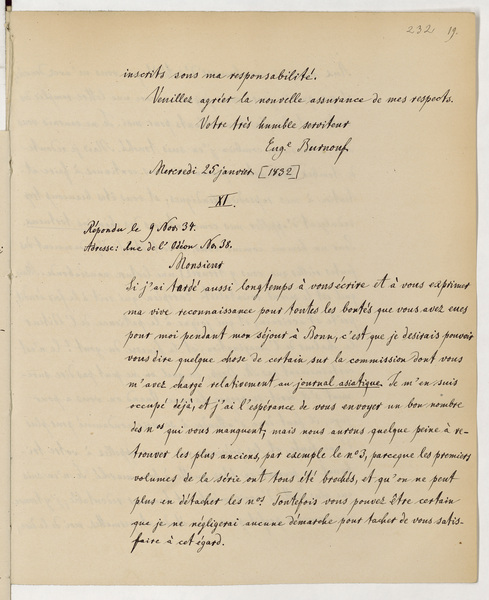 232 19.
inscrits sous ma responsabilité.
Veuillez agréer la nouvelle assurance de mes respects.
Votre très humble serviteur
Eug.e Burnouf
Mercredi 25 janvier [1832]
XI.
Répondu le 9 Nov. 34.
Adresse: Rue de l'Odéon No. 38.
Monsieur
Si j'ai tardé aussi longtemps à vous écrire et à vous exprimer
ma vive reconnaissance pour toutes les bontés que vous avez eues
pour moi pendant mon séjour à Bonn, c'est que je desirais pouvoir
vous dire quelque chose de certain sur la commission dont vous
m'avez chargé relativement au journal asiatique. Je m'en suis
occupé déjà, et j'ai l'espérance de vous envoyer un bon nombre
des n.os qui vous manquent, mais nous aurons quelque peine à re-
trouver les plus anciens, par exemple le n.o 3, parceque les premiers
volumes de la série ont tous été brochés, et qu'on ne peut
plus en détacher les n.os Toutefois vous pouvez être certain
que je ne négligerai aucune démarche pour tacher de vous satis-
faire à cet égard.